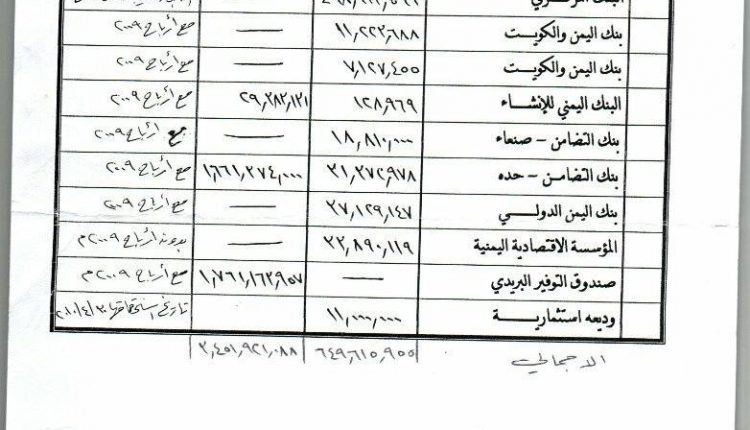 البنك المركزي
بنك اليمن والكويت ١١,٢٢٣,٦٨٨ — مع أرباح ٢٠٠٩
بنك اليمن والكويت ٧,١٢٧,٤٥٥ — مع أرباح ٢٠٠٩
البنك اليمني للإنشاء ١٢٨,٩٦٩ ٢٩,٣٨٣,١٣١ مع أرباح ٢٠٠٩
بنك التضامن - صنعاء ١٨,٨١٠,٠٠٠ — مع أرباح ٢٠٠٩
بنك التضامن - حده ٣١,٣٧٢,٩٧٨ ١,٦٦١,٣٧٤,٠٠٠ مع أرباح ٢٠٠٩
بنك اليمن الدولي ٣٧,١٢٩,١٤٧ — مع أرباح ٢٠٠٩
المؤسسة الاقتصادية اليمنية ٣٣,٨٩٠,١١٩ — بدون أرباح ٢٠٠٩م
صندوق التوفير البريدي — ١,٧٦١,١٦٣,٩٥٧ مع أرباح ٢٠٠٩م
وديعه استثمارية ١١,٠٠٠,٠٠٠ تاريخ استحقاقها
الاجمالي ٦٤٩,٦١٥,٩٥٥ ٣,٤٥١,٩٢١,٠٨٨